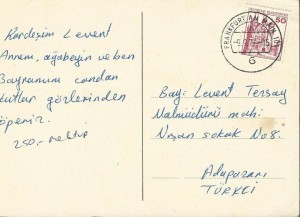 Kardeşim Levent
Annem, ağabeyin ve ben
Bayramını candan
kutlar gözlerinden
öperiz.
250.- mektup
FRANKFURT AM MAIN
60
G
Bay: Levent Tersay
Malmüdürü mah:
Nişan sokak No 8.
Adapazarı
TÜRKEİ